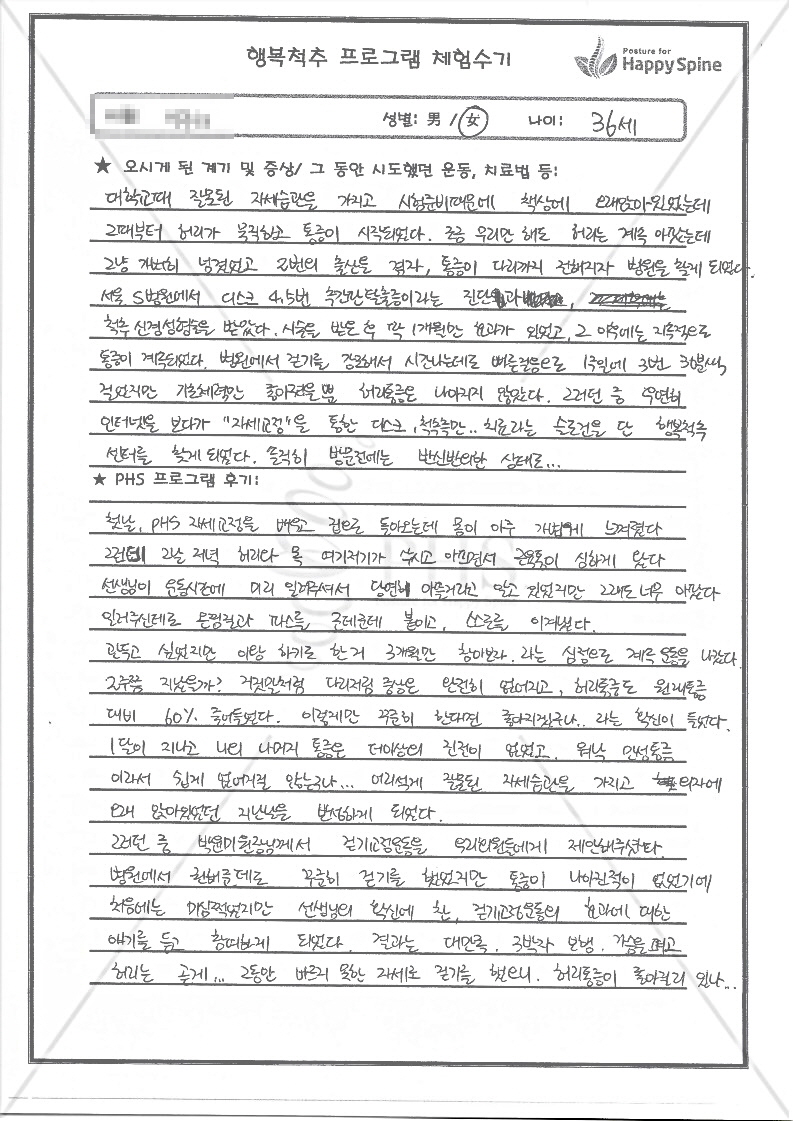 행복척추 프로그램 체험수기
Posture for
Happy Spine
성별: 男 / 女 나이: 36세
★ 오시게 된 계기 및 증상/ 그 동안 시도했던 운동, 치료법 등:
대학교때 잘못된 자세습관을 가지고 시험준비때문에 책상에 오래앉아있었는데
그때부터 허리가 묵직하고 통증이 시작되었다. 조금 무리만 해도 허리는 계속 아팠는데
그냥 가볍히 넘겼었고 2번의 출산을 겪자, 통증이 다리까지 전해지자 병원을 찾게 되었다.
서울 S병원에서 디스크 4,5번 추간판탈출증이라는 진단
척추 신경성형술을 받았다. 시술을 받은 후 딱 1개월만 효과가 있었고, 그 이후에는 지속적으로
통증이 계속되었다. 병원에서 걷기를 강요해서 시간나는데로 빠른걸음으로 1주일에 3번 30분씩
걸었지만 기초체력만 좋아졌을뿐 허리통증은 나아지지 않았다. 그러던 중 우연히
인터넷을 보다가 "자세교정"을 통한 디스크, 척추측만.. 치료라는 슬로건을 단 행복척추
센터를 찾게 되었다. 솔직히 방문전에는 반신반의한 상태로...
★ PHS 프로그램 후기:
첫날, PHS 자세교정을 배우고 집으로 돌아오는데 몸이 아주 가볍게 느껴졌다
그런데 그날 저녁 허리다 목 여기저기가 쑤시고 아프면서 근육통이 심하게 왔다
선생님이 운동시간에 미리 일러주셔서 당연히 아플거라고 알고 있었지만 그래도 너무 아팠다
일러주신데로 온찜질과 파스를 군데군데 붙이고, 스스로를 이겨냈다.
관두고 싶었지만 이왕 하기로 한거 3개월만 참아보자. 라는 심정으로 계속 운동을 나갔다.
2주쯤 지났을까? 거짓말처럼 다리저림 증상은 완전히 없어지고, 허리통증도 원래통증
대비 60% 줄어들었다. 이렇게만 꾸준히 한다면 좋아지겠구나.. 라는 확신이 들었다.
1달이 지나고 나의 나머지 통증은 더이상의 진전이 없었고. 워낙 만성통증
이라서 쉽게 없어지질 않는구나... 어리석게 잘못된 자세습관을 가지고 의자에
오래 앉아있었던 지난날을 반성하게 되었다.
그러던 중 박윤미원장님께서 걷기교정운동을 우리회원들에게 제안해주셨다.
병원에서 권해준데로 꾸준히 걷기를 했었지만 통증이 나아진적이 없었기에
처음에는 미심쩍었지만 선생님의 확신에 찬, 걷기교정운동의 효과에 대한
얘기를 듣고 함께하게 되었다. 결과는 대만족. 3박자 보행. 가슴을 펴고
허리는 곧게... 그동안 바르지 못한 자세로 걷기를 했으니. 허리통증이 좋아질리 있나...